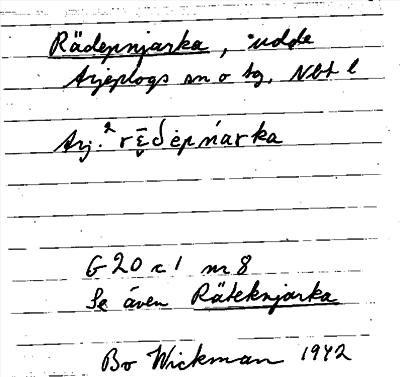 Rädepnjarka, udde
Arjeplogs sn o tg, Nbt l
Arj. ²rɛ̮̄δėpńarka
G 20 c 1 nr 8
Se även Räteknjarka
Bo Wickman 1942